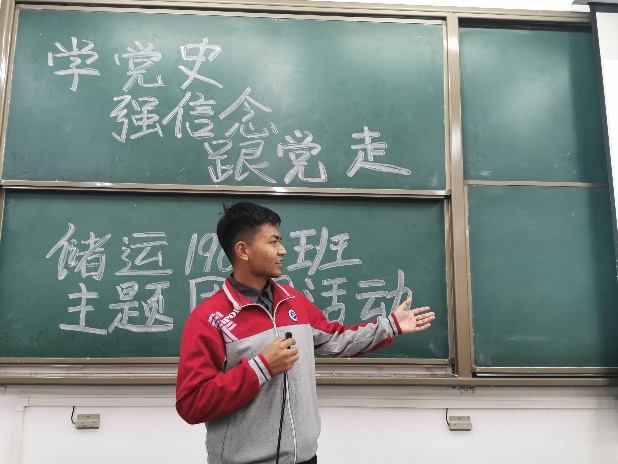 学党史
强信念
跟党走
储运19 班
主题团 活动